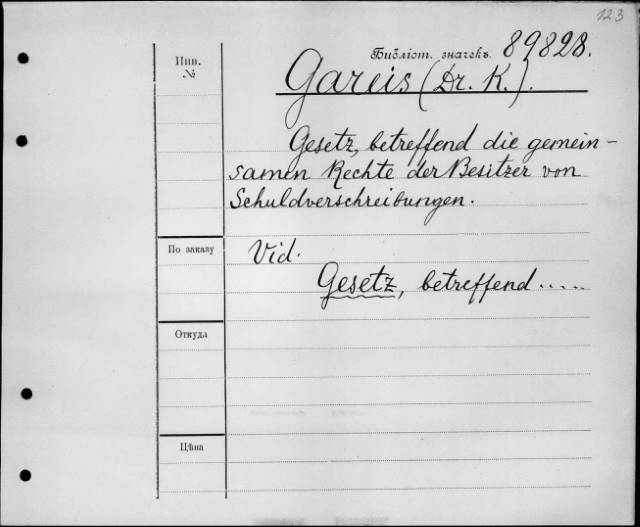 123
Инв.
№
Библіот. значекъ. 89828.
Gareis (Dr. K.).
Gesetz, betreffend die gemein-
samen Rechte der Besitzer von
Schuldverschreibungen.
По заказу
Vid.
Gesetz, betreffend.....
Откуда
Цѣна